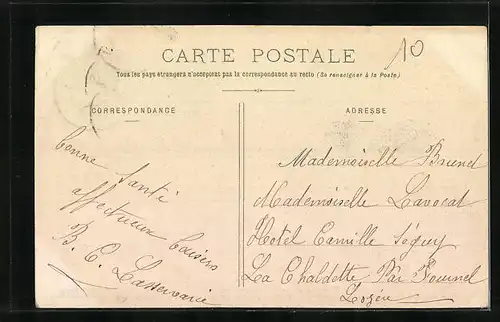 CARTE POSTALE
10
Tous les pays étrangers n'acceptent pas la correspondance au recto (Se renseigner à la Poste)
CORRESPONDANCE
ADRESSE
bonne
Santé
affectueux baisers
B. C.
Mademoiselle Brunel
Mademoiselle Lavocat
Hotel Camille Séguy
La Chaldette Par Fournel
Lozère